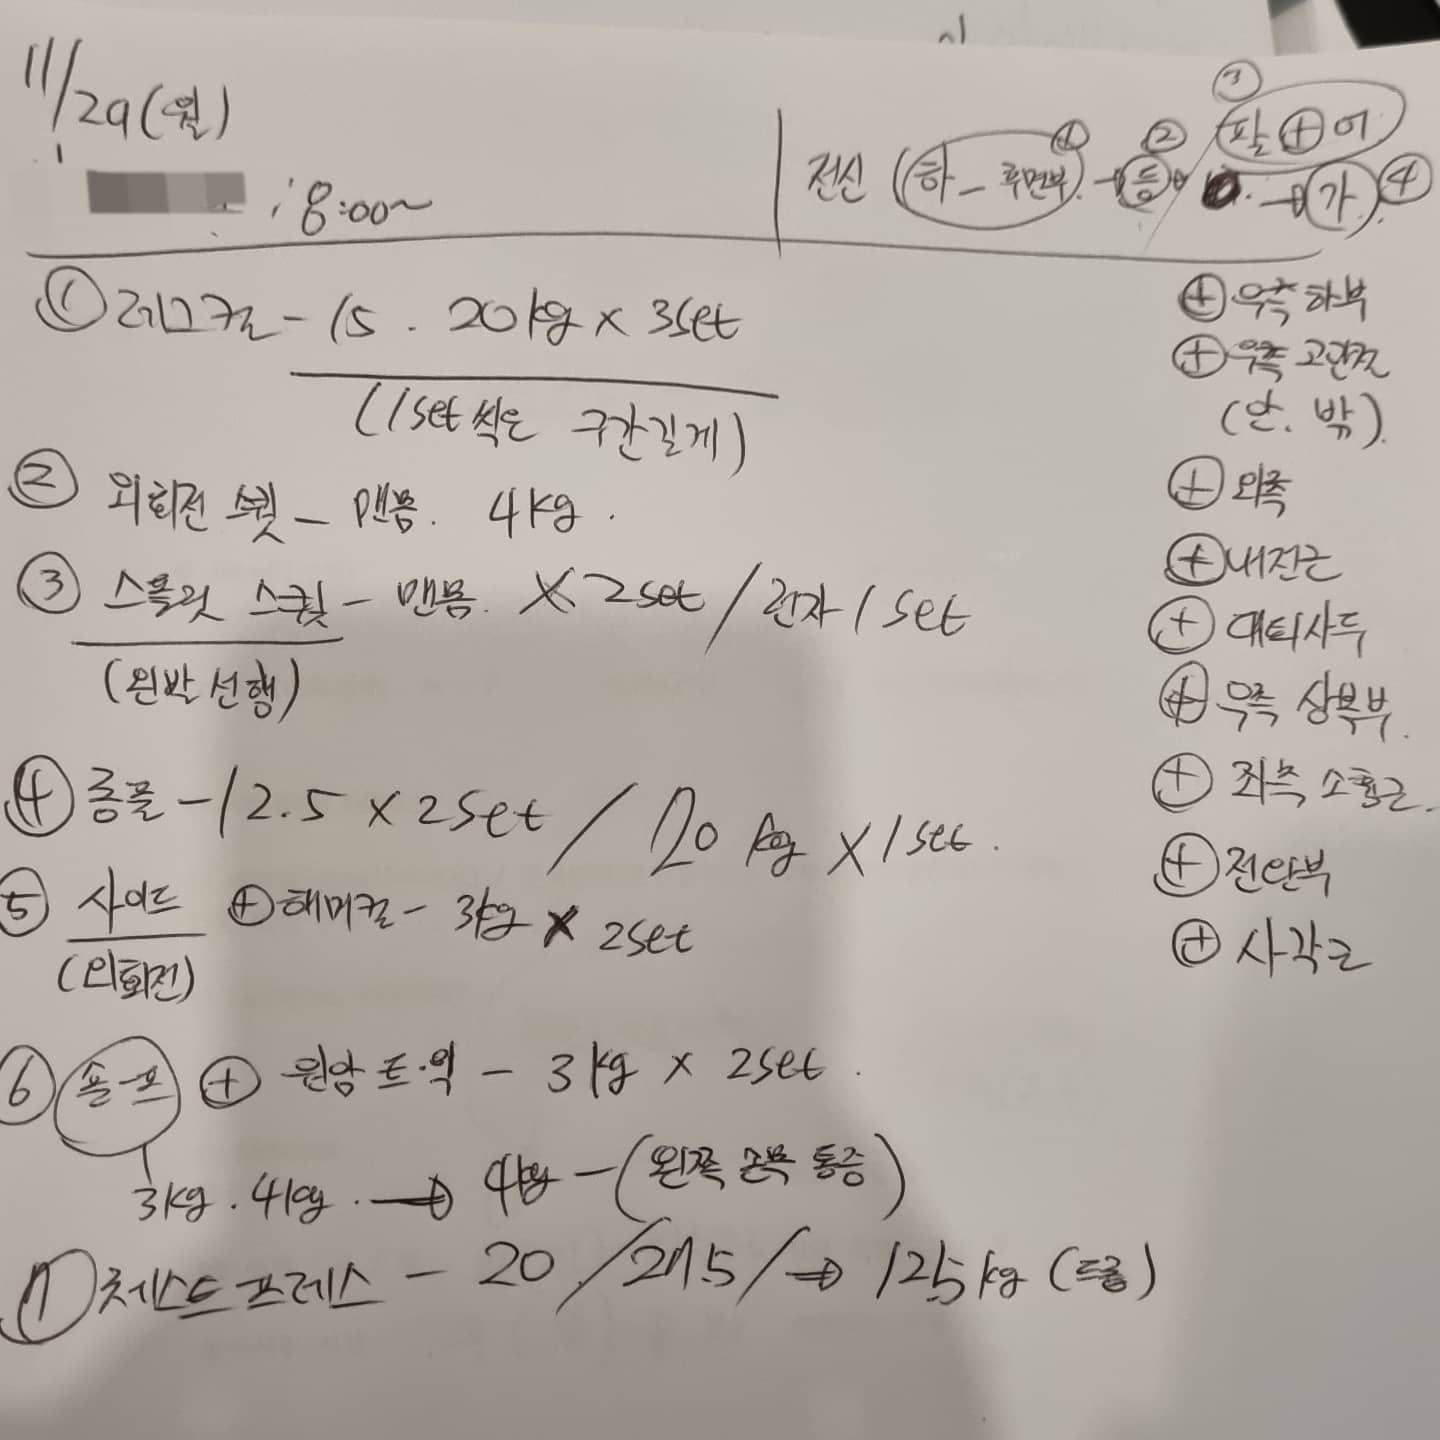 11/29(월)
: 8:00~
전신 (하 - 후면부) ① → 등 ② → 팔 ⊕ 어 ③ → 가 ④
① 레그컬 - 15. 20kg x 3set
(1set씩은 구간길게)
② 외회전 스퀏 - 맨몸. 4kg.
③ 스플릿 스쿼트 - 맨몸. X 2set / 런자 1set
(왼발 선행)
④ 롱풀 - 12.5 x 2set / 20kg x 1set.
⑤ 사이드 ⊕ 해머컬 - 3kg x 2set
(외회전)
⑥ 숄-프 ⊕ 원암 트.익 - 3kg x 2set.
3kg. 4kg. → 4kg - (왼쪽 손목 통증)
⑦ 체스트 프레스 - 20 / 27.5 / → 12.5kg (드롭)
⊕ 우측 하부
⊕ 우측 고관절
(안. 밖).
⊕ 외측
⊕ 내전근
⊕ 대퇴사두
⊕ 우측 상복부.
⊕ 좌측 소흉근.
⊕ 전완부
⊕ 사각근